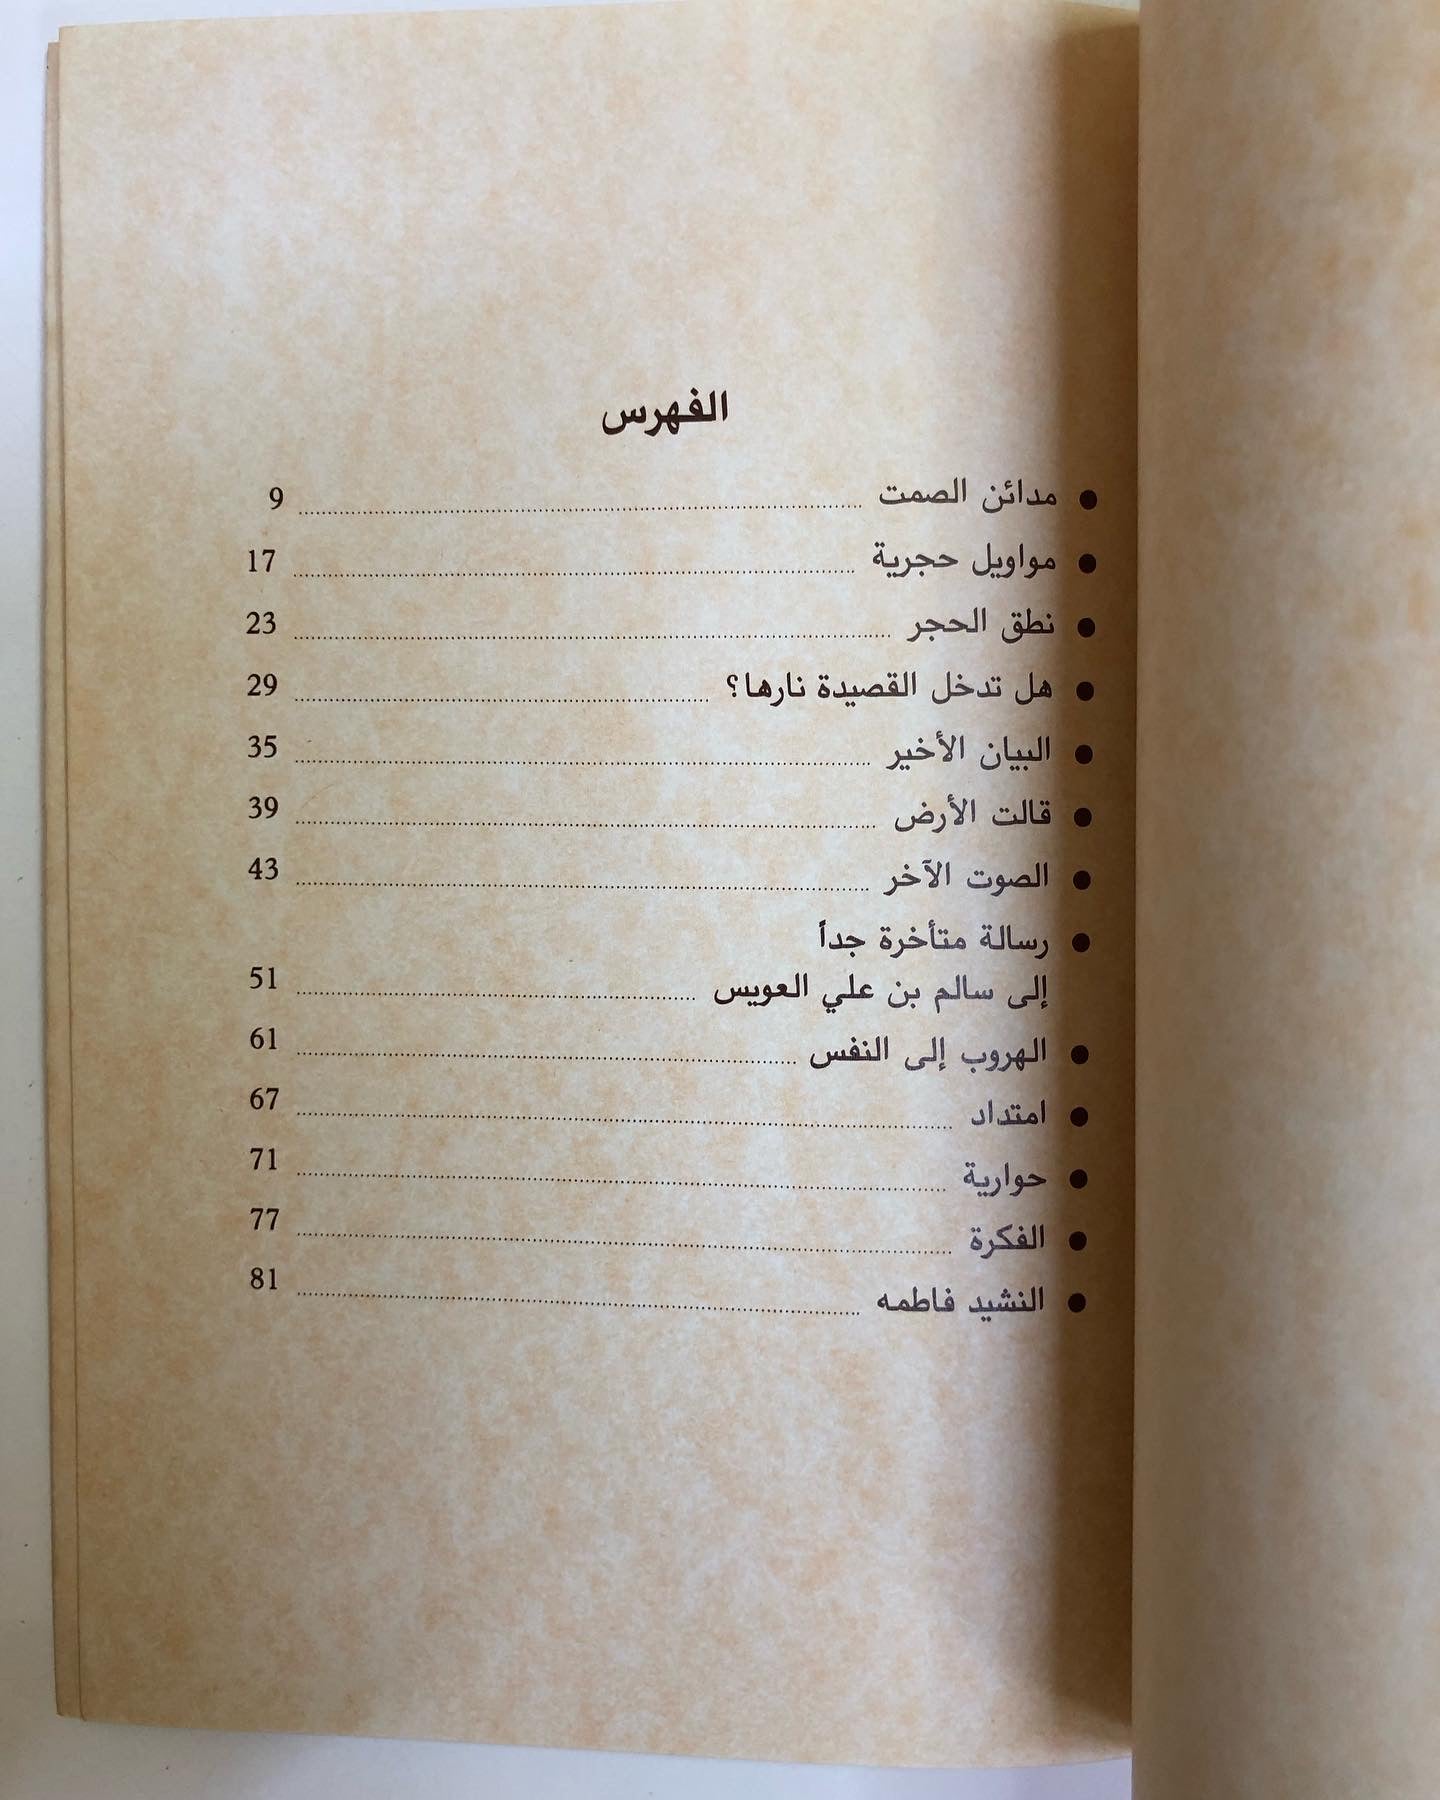 الفهرس
● مدائن الصمت ........................ 9
● مواويل حجرية ........................ 17
● نطق الحجر ........................ 23
● هل تدخل القصيدة نارها؟ ........................ 29
● البيان الأخير ........................ 35
● قالت الأرض ........................ 39
● الصوت الآخر ........................ 43
● رسالة متأخرة جداً
إلى سالم بن علي العويس ........................ 51
● الهروب إلى النفس ........................ 61
● امتداد ........................ 67
● حوارية ........................ 71
● الفكرة ........................ 77
● النشيد فاطمه ........................ 81